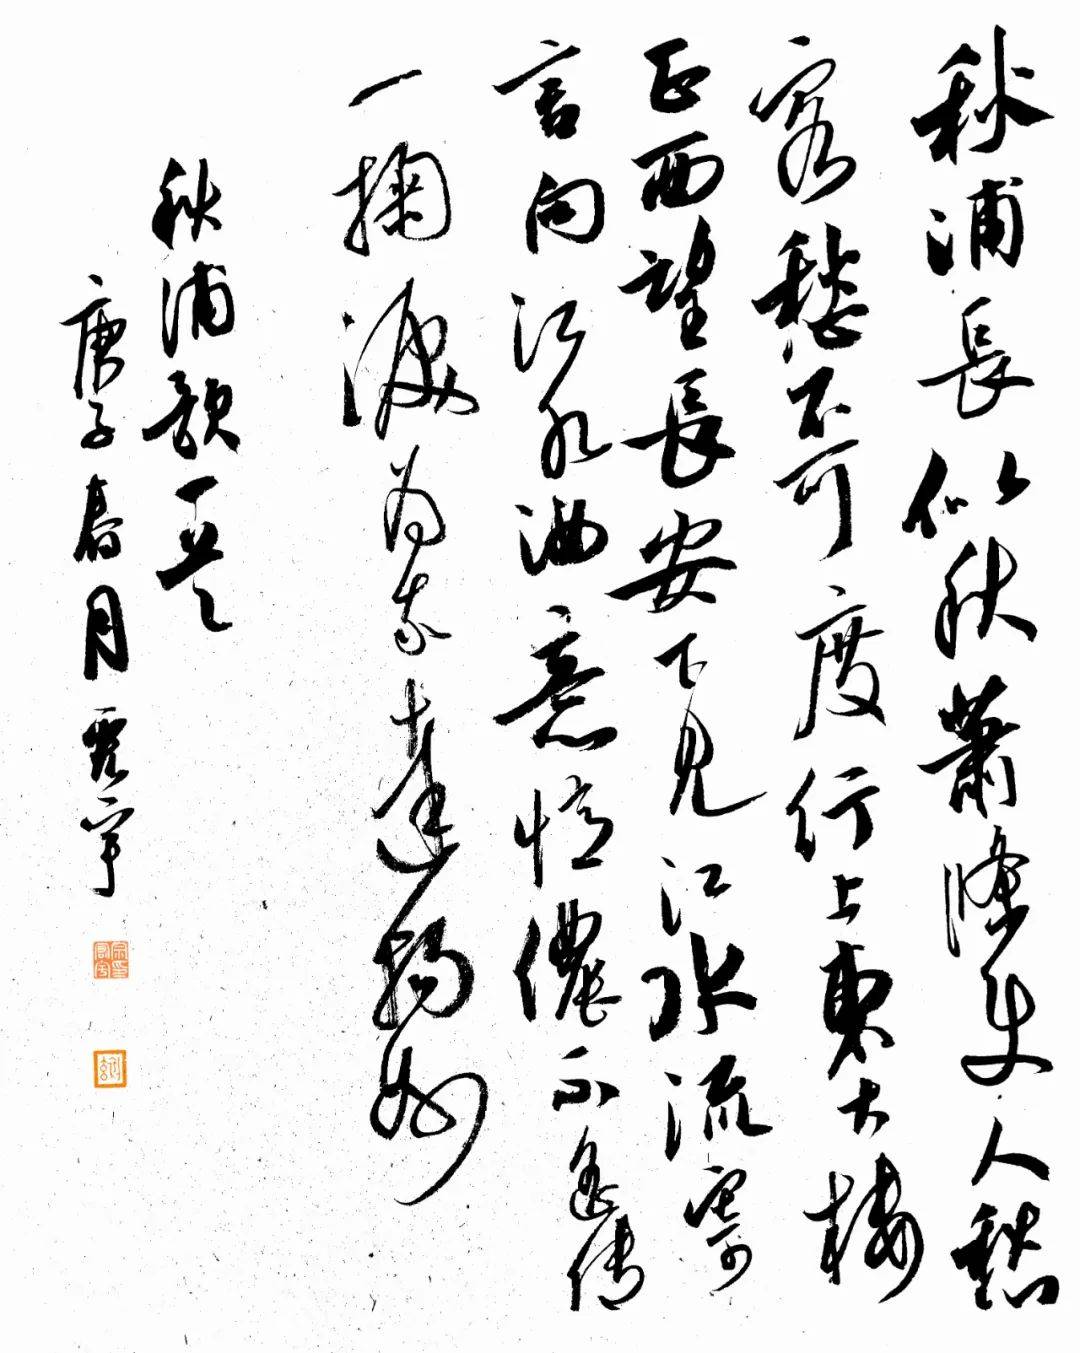 秋浦長似秋蕭條使人愁
客愁不可度行上東大樓
正西望長安下見江水流寄
言向江水汝意憶儂不遥傳
一掬淚為我達揚州
秋浦歌一首
庚子春月